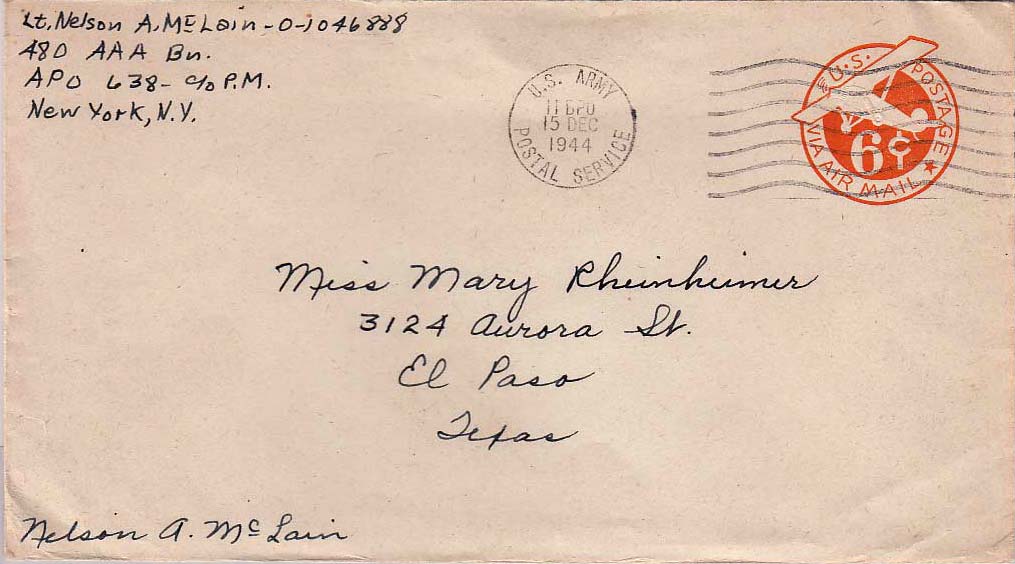 Lt. Nelson A. McLain - O-1046888
480 AAA Bn.
APO 638 - c/o P.M.
New York, N.Y.
U.S. ARMY
15 DEC
1944
POSTAL SERVICE
U.S. POSTAGE
6¢
VIA AIR MAIL
Miss Mary Rheinheimer
3124 Aurora St.
El Paso
Texas
Nelson A. McLain